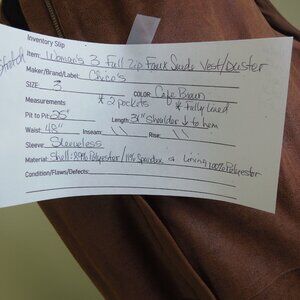 Stretch
Inventory Slip
Item: Woman's 3 Full Zip Faux Suede Vest/Duster
Maker/Brand/Label: Chico's
SIZE 3 COLOR: Cafe Brown
Measurements * 2 pockets * fully lined
Pit to Pit 25" Length: 34" shoulder ↓ to hem
Waist: 48" Inseam: Rise:
Sleeve: Sleeveless
Material: Shell: 89% Polyester/11% Spandex & Lining 100% Polyester
Condition/Flaws/Defects: